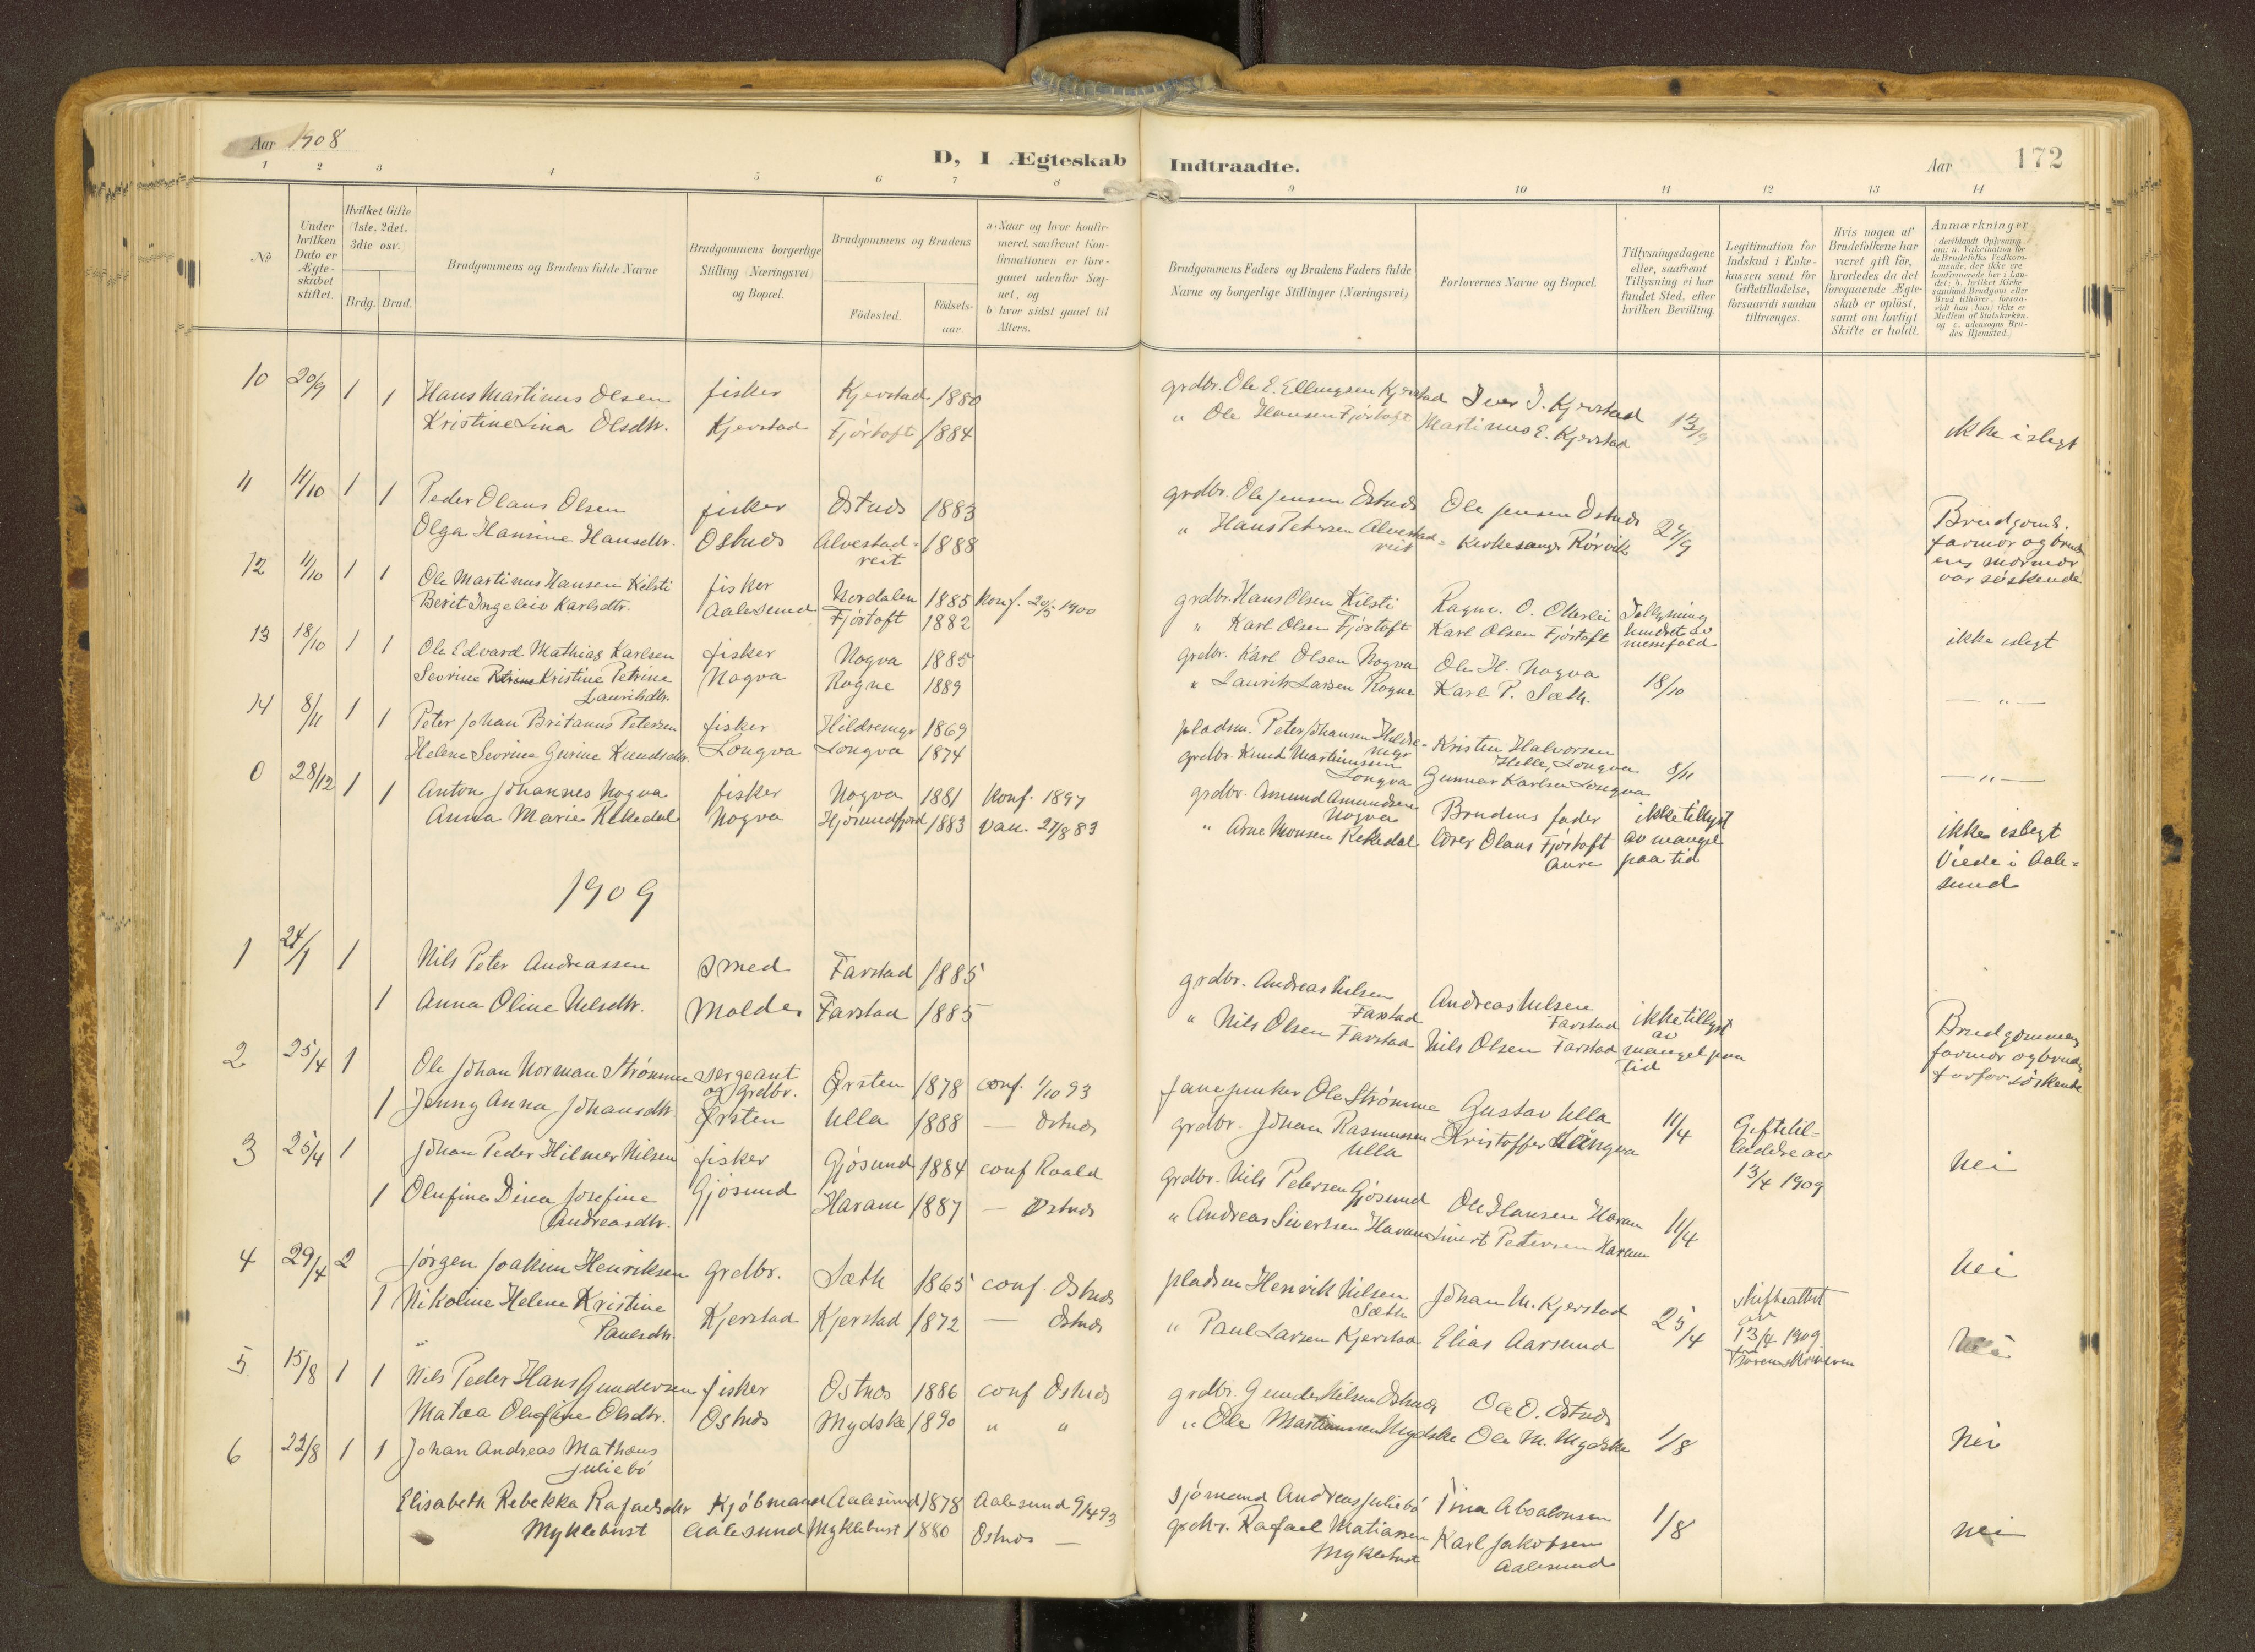 Aar 1908
D, I Ægteskab Indtraadte.
Aar 172
1 2 3 4 5 6 7 8 9 10 11 12 13 14
No
Under hvilken Dato er Ægteskabet stiftet.
Hvilket Gifte (1ste, 2det, 3die osv.
Brdg. Brud.
Brudgommens og Brudens fulde Navne
Brudgommens borgerlige Stilling (Næringsvei) og Bopæl.
Brudgommens og Brudens
Fødested.
Fødselsaar.
a) Naar og hvor konfirmeret, saafremt Konfirmationen er foregaaet udenfor Sognet, og
b) hvor sidst gaaet til Alters.
Brudgommens Faders og Brudens Faders fulde Navne og borgerlige Stillinger (Næringsvei)
Forlovernes Navne og Bopæl.
Tillysningsdagene eller, saafremt Tillysning ei har fundet Sted, efter hvilken Bevilling.
Legitimation for Indskud i Enkekassen samt for Giftetilladelse, forsaavidt saadan tiltrænges.
Hvis nogen af Brudefolkene har været gift før, hvorledes da det foregaaende Ægteskab er opløst, samt om lovligt Skifte er holdt.
Anmærkninger
(deriblandt Oplysning om: a. Vakcination for de Brudefolks Vedkommende, der ikke ere konfirmerede her i Landet; b. hvilket Kirkesamfund Brudgom eller Brud tilhører, forsaavidt han (hun) ikke er Medlem af Statskirken. og c. udensogns Brudes Hjemsted.)
10 20/9 1 1 Hans Martinus Olsen fisker Kjerstad 1880 grdbr. Ole E. Ellingsen Kjerstad Iver I. Kjerstad 13/9 ikke i slegt
Kristine Lina Olsdtr. Kjerstad Fjørtoft 1884 " Ole Hansen Fjørtoft Martinus E. Kjerstad
11 11/10 1 1 Peder Olaus Olsen fisker Østnes 1883 grdbr. Ole Jensen Østnes Ole Jensen Østnes 27/9 Brudgoms.
farmor og brud
ens mormor
var søskende
Olga Hansine Hansdtr. Østnes Alvestad=
reit 1888 " Hans Petersen Alvestad=
reit Kirkesanger Rørvik
12 11/10 1 1 Ole Martinus Hansen Kilsti fisker Nordalen 1885 Konf. 20/5 1900 grdbr. Hans Olsen Kilsti Ragnv. O. Otterlei Tillysning
hindret av
ikke i slegt
Berit Ingeleiv Karlsdtr. Aalesund Fjørtoft 1882 " Karl Olsen Fjørtoft Karl Olsen Fjørtoft
13 18/10 1 1 Ole Edvard Mathias Karlsen fisker Nogva 1885 grdbr. Karl Olsen Nogva Ole H. Nogva 18/10 — " —
Sevrine Kristine Petrine
Lauritsdtr. Nogva Rogne 1889 " Laurits Larsen Rogne Karl P. Sæth.
14 8/11 1 1 Peter Johan Britanus Petersen fisker Hildremyr 1869 pladsm. Peter Johansen Hildre=
myr Kristen Halvorsen
Helle, Longva 8/11 — " —
Helene Sevrine Gurine Knudsdtr. Longva Longva 1874 grdbr. Knud Martinussen
Longva Gunnar Karlsen Longva
0 28/12 1 1 Anton Johannes Nogva fisker Nogva 1881 Konf. 1897 grdbr. Amund Amundsen
Nogva Brudens fader ikke tillyst
av mangel
paa tid ikke i slegt
Viede i Aale=
sund
Anna Marie Rekkedal Nogva Hjørundfjord 1883 vac. 27/8 83 " Arne Monsen Rekkedal lærer Olaus Fjørtoft
Aure
1909
1 24/1 1 Nils Peter Andreassen smed Farstad 1885 grdbr. Andreas Nilsen
Farstad Andreas Nilsen
Farstad ikke tillyst
av
mangel paa
tid Brudgommens
farmor og bruds
farfar søskende
1 Anna Oline Nilsdtr. Molde Farstad 1885 " Nils Olsen Farstad Nils Olsen Farstad
2 25/4 1 Ole Johan Norman Strømme sergeant
og grdbr. Ørsten 1878 conf. 1/10 93 fanejunker Ole Strømme Gustav Ulla 11/4 Giftetil=
ladelse av
13/4 1909 Nei
1 Jenny Anna Johansdtr. Ørsten Ulla 1888 — Østnes grdbr. Johan Rasmussen
Ulla Kristoffer Långva
3 25/4 1 Johan Peder Hilmer Nilsen fisker Gjøsund 1884 conf Roald grdbr. Nils Petersen Gjøsund Ole Hansen Haram 11/4 Nei
1 Olufine Dina Josefine
Andreasdtr. Gjøsund Haram 1887 — Østnes " Andreas Sivertsen Haram Sivert Petersen Haram
4 29/4 2 Jørgen Joakim Henriksen grdbr. Sæth 1865 conf. Østnes pladsm Henrik Nilsen
Sæth Johan M. Kjerstad 25/4 skifteattest
av
13/4 1909
Sorenskriveren Nei
1 Nikoline Helene Kristine
Paulsdtr. Kjerstad Kjerstad 1872 — Østnes " Paul Larsen Kjerstad Elias Aarsund
5 15/8 1 1 Nils Peder Hans Gundersen fisker Østnes 1886 conf Østnes grdbr. Gunder Nilsen Østnes Ole O. Østnes 1/8 Nei
Matea Olufine Olsdtr. Østnes Mydske 1890 " " " Ole Martinussen Mydske Ole M. Mydske
6 22/8 1 1 Johan Andreas Mathæus
Juliebø Kjøbmand Aalesund 1878 Aalesund 9/4 93 Sjømand Andreas Juliebø Tina Absalonsen 1/8 Nei
Elisabeth Rebekka Rafaelsdtr
Myklebust Aalesund Myklebust 1880 Østnes — grdbr. Rafael Matiassen
Myklebust Karl Jakobsen
Aalesund